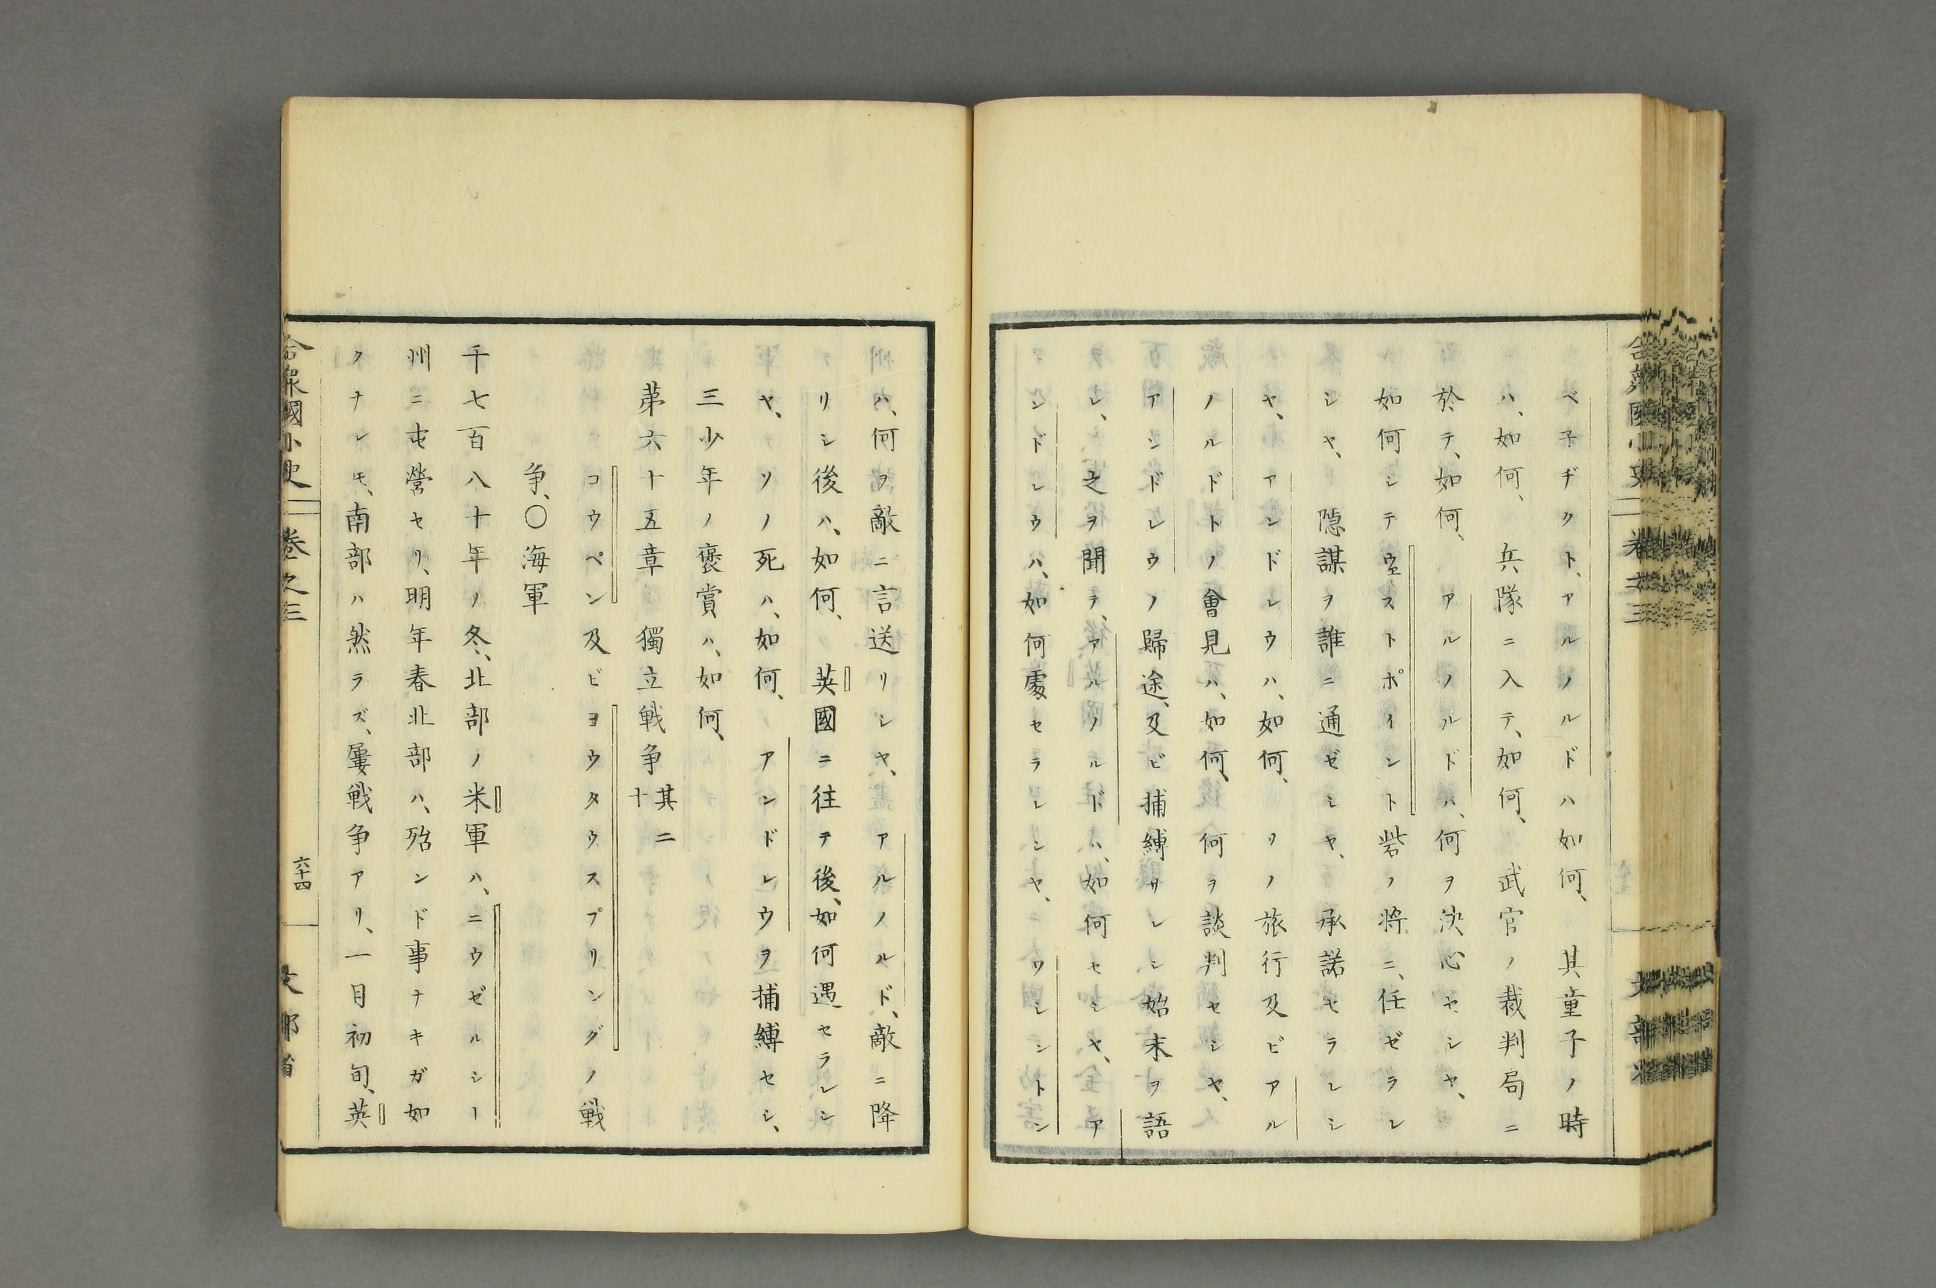 ベ子ヂクト、アルノルドハ如何、　其童子ノ時
ハ、如何、　兵隊ニ入テ、如何、　武官ノ裁判局ニ
於テ、如何、　アルノルドハ、何ヲ決心セシヤ、
如何シテウエストポイント砦ノ將ニ、任ゼラレ
シヤ、　隠謀ヲ誰ニ通ゼシヤ、承諾セラレシ
ヤ、　アンドレウハ、如何、　ソノ旅行及ビアル
ノルドトノ會見ハ、如何、　何ヲ談判セシヤ、
アンドレウノ歸途、及ビ捕縛サレシ始末ヲ語
レ、　之ヲ聞テ、アルノルドハ、如何セシヤ、　ア
ンドレウハ、如何處セラレシヤ、　ワシントン
ハ、何ヲ敵ニ言送リシヤ、　アルノルド、敵ニ降
リシ後ハ、如何、　英國ニ往テ後、如何遇セラレシ
ヤ、　ソノ死ハ、如何、　アンドレウヲ捕縛セシ、
三少年ノ褒賞ハ、如何、
第六十五章　獨立戦争　其二十
コウペン及ビヨウタウスプリングノ戦
争、〇海軍
千七百八十年ノ冬、北部ノ米軍ハ、ニウゼルシー
州ニ屯營セリ、明年春北部ハ、殆ンド事ナキガ如
クナレモ、南部ハ然ラズ、屢戦争アリ、一月初旬、英
合衆國小史　卷之三　六十四　文部省